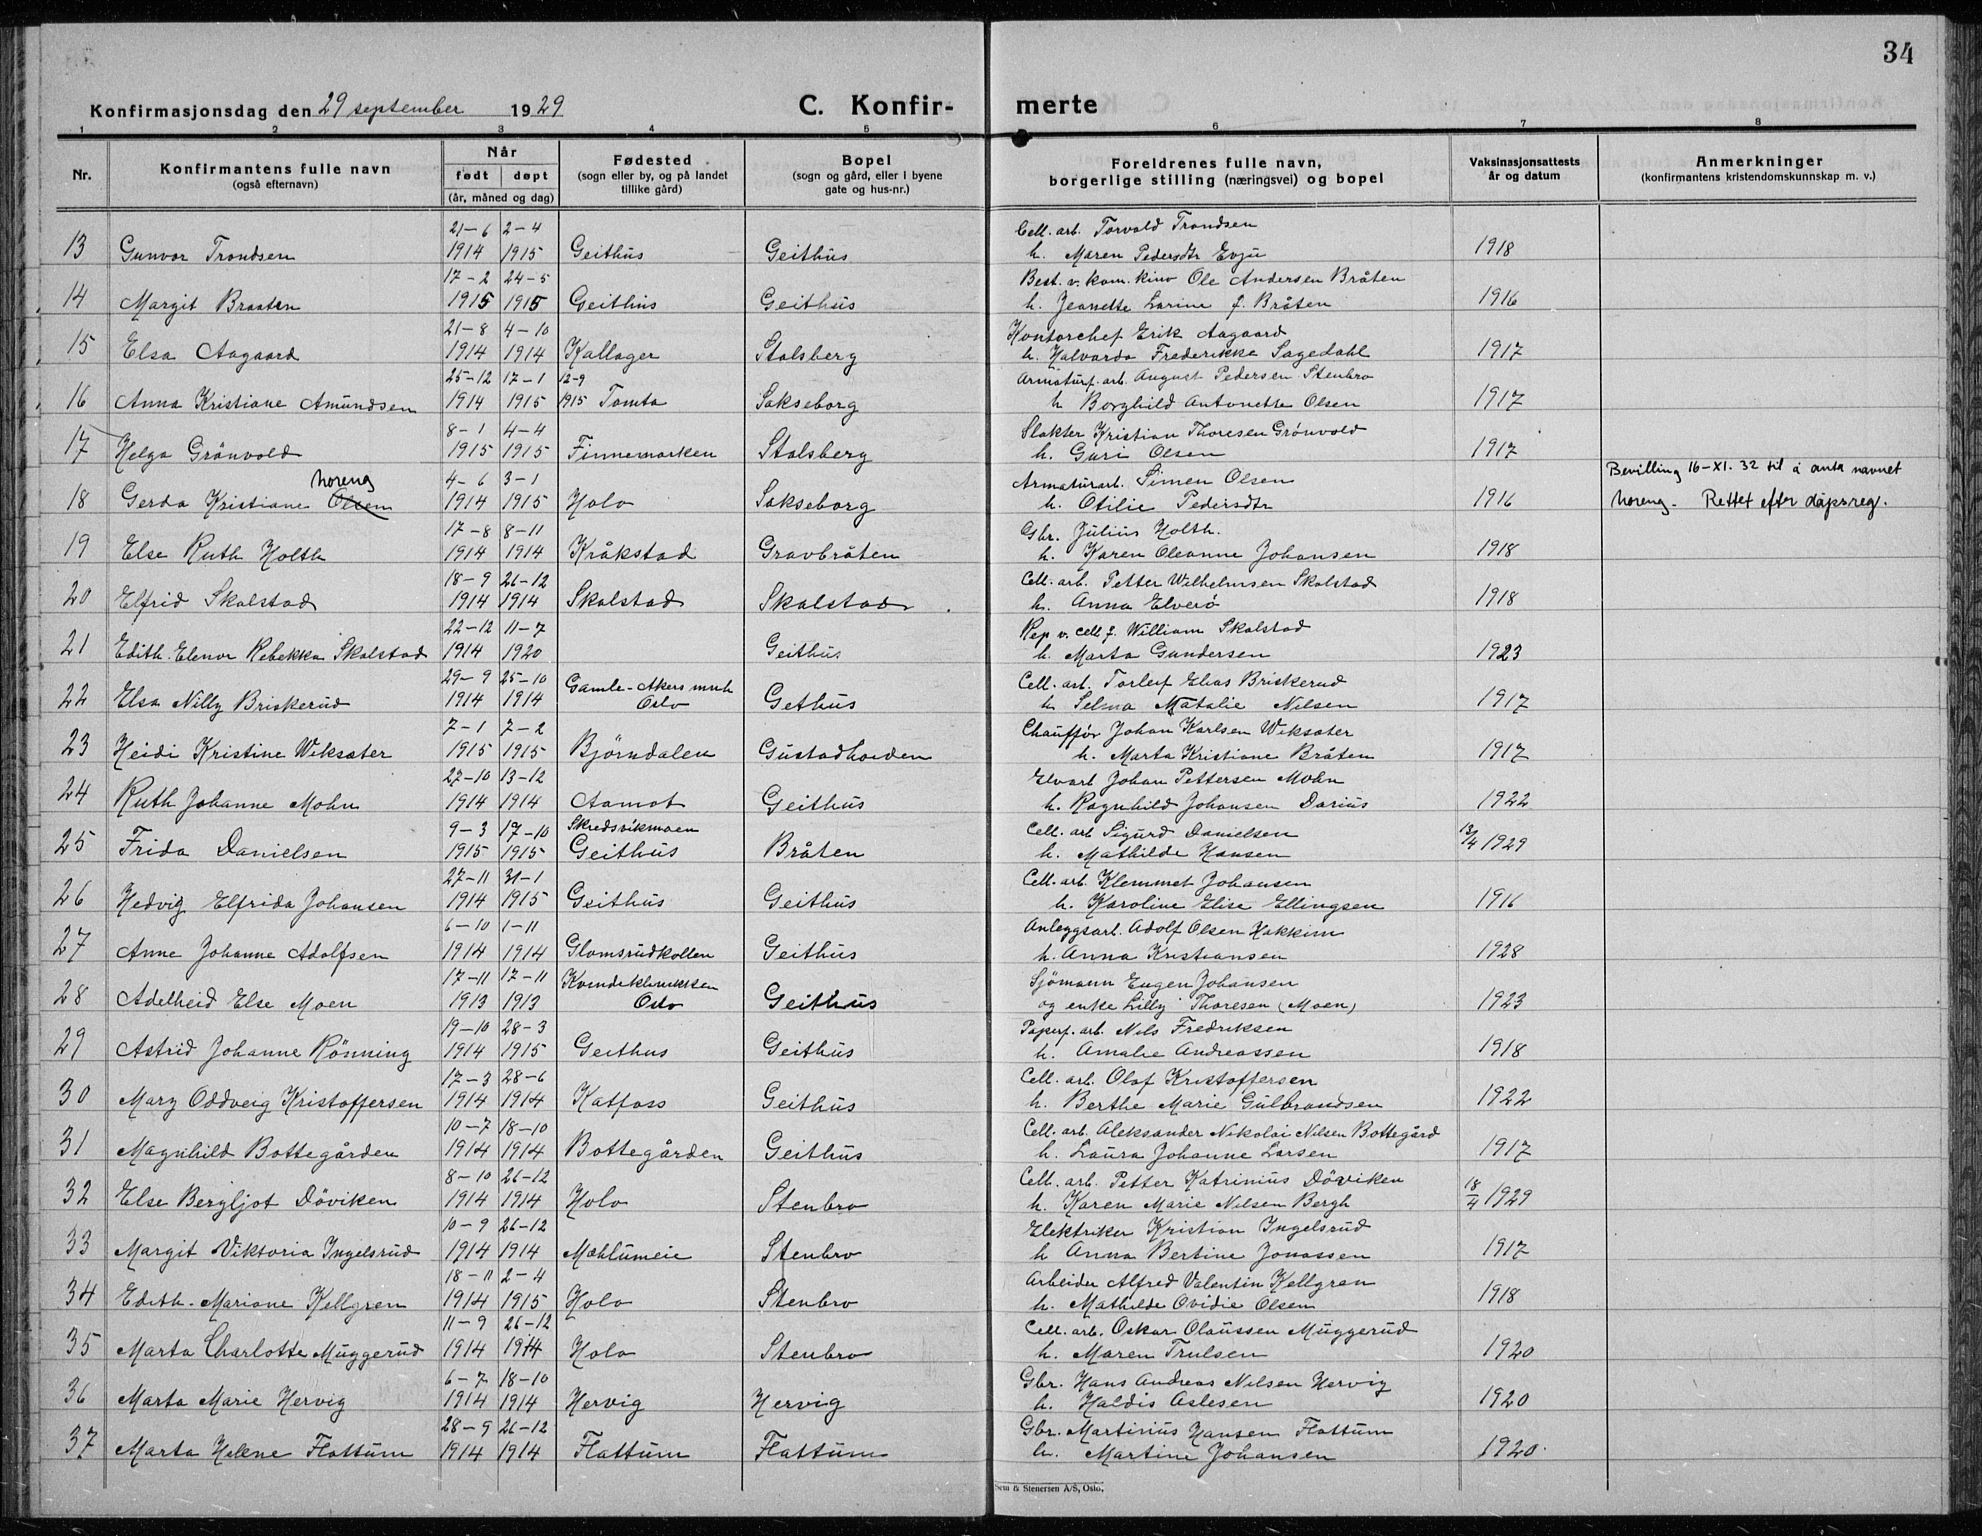 34
Konfirmasjonsdag den 29 september 1929
C. Konfir-
merte
1 2 3 4 5 6 7 8
Nr.
Konfirmantens fulle navn
(også efternavn)
Når
født døpt
(år, måned og dag)
Fødested
(sogn eller by, og på landet
tillike gård)
Bopel
(sogn og gård, eller i byene
gate og hus-nr.)
Foreldrenes fulle navn,
borgerlige stilling (næringsvei) og bopel
Vaksinasjonsattests
år og datum
Anmerkninger
(konfirmantens kristendomskunnskap m. v.)
21-6 2-4 Cell. arb. Torvald Trondsen
13 Gunvor Trondsen 1914 1915 Geithus Geithus h. Maren Pedersdtr Evju 1918
17-2 24-5 Best. v. kom. kino Ole Andersen Bråten
14 Margit Braaten 1915 1915 Geithus Geithus h. Jeanette Larine f. Bråten 1916
21-8 4-10 Kontorchef Erik Aagaard
15 Elsa Aagaard 1914 1914 Kallager Stalsberg h. Halvarda Frederikke Sagedahl 1917
25-12 17-1 12-9 Armaturf. arb. August Pedersen Stenbro
16 Anna Kristiane Amundsen 1914 1915 1915 Tomta Sakseborg h Borghild Antonette Olsen 1917
8-1 4-4 Slakter Kristian Thoresen Grønvold
17 Helga Grönvold 1915 1915 Finnemarken Stalsberg h. Guri Olsen 1917
Noreng 4-6 3-1 Armaturarb. Simen Olsen Bevilling 16-XI. 32 til å anta navnet
18 Gerda Kristiane Olsen 1914 1915 Holo Sakseborg h. Otilie Pedersdtr 1916 Noreng. Rettet efter dåpsreg.
17-8 8-11 Gbr. Julius Holth.
19 Else Ruth Holth 1914 1914 Kråkstad Gravbråten h. Karen Oleanne Johansen 1918
18-9 26-12 Cell. arb. Petter Wilhelmsen Skalstad
20 Elfrid Skalstad 1914 1914 Skalstad Skalstad h. Anna Elverö 1918
22-12 11-7 Rep v. cell f. William Skalstad
21 Edith Elenor Rebekka Skalstad 1914 1920 Geithus h. Marta Gundersen 1923
29-9 25-10 Gamle-Akers mnh Cell. arb. Torleif Elias Briskerud
22 Elsa Nilly Briskerud 1914 1914 Oslo Gethus h Selma Natalie Nilsen 1917
7-1 7-2 Chauffør Johan Karlsen Wiksæter
23 Heidi Kristine Wiksæter 1915 1915 Björndalen Gustadhaiden h. Marta Kristiane Bråten 1917
27-10 13-12 Elvarb Johan Pettersen Mohn
24 Ruth Johanne Mohn 1914 1914 Aamot Geithus h. Ragnhild Johansen Darius 1922
9-3 17-10 Skredsvikmoen Cell. arb Sigurd Danielsen
25 Frida Danielsen 1915 1915 Geithus Bråten h. Mathilde Hansen 13/4 1929
27-11 31-1 Cell. arb. Klemmet Johansen
26 Hedvig Elfrida Johansen 1914 1915 Geithus Geithus h. Karoline Elise Ellingsen 1916
6-10 1-11 Anleggsarb. Adolf Olsen Hakkim
27 Anne Johanne Adolfsen 1914 1914 Glomsrudkollen Geithus h. Anna Kristiansen 1928
17-11 17-11 Sjömann Eugen Johansen
28 Adelheid Else Moen 1913 1913 Oslo Geithus og enke Lilly Thoresen (Moen) 1923
19-10 28-3 Paperf. arb. Nils Fredriksen
29 Astrid Johanne Rönning 1914 1915 Geithus Geithus h. Amalie Andreassen 1918
17-3 28-6 Cell. arb. Olaf Kristoffersen
30 Mary Oddveig Kristoffersen 1914 1914 Katfoss Geithus h. Berthe Marie Gulbrandsen 1922
10-7 18-10 Cell. arb. Aleksander Nikolai Nilsen Bottegård
31 Magnhild Bottegården 1914 1914 Bottegården Geithus h. Laura Johanne Larsen 1917
8-10 26-12 Cell. arb. Petter Katrinius Döviken
32 Else Bergljot Döviken 1914 1914 Holo Stenbro h. Karen Marie Nilsen Bergh 18/4 1929
10-9 26-12 Elektriker Kristian Ingelsrud
33 Margit Viktoria Ingelsrud 1914 1914 Mæhlumeie Stenbro h Anna Bertine Jonassen 1917
18-11 2-4 Arbeider Alfred Valentin Kellgren
34 Edith Mariane Kellgren 1914 1915 Holo Stenbro h. Mathilde Ovidie Olsen 1918
11-9 26-12 Cell. arb. Oskar Olaussen Muggerud
35 Marta Charlotte Muggerud 1914 1914 Holo Stenbro h. Maren Trulsen 1920
6-7 18-10 Gbr. Hans Andreas Nilsen Hervig
36 Marta Marie Hervig 1914 1914 Hervig Hervig h. Haldis Aslesen 1920
28-9 26-12 Gbr. Martinius Hansen Flattum
37 Marta Helene Flattum 1914 1914 Flattum Flattum h. Martine Johansen 1920.
Sem & Stenersen A/S, Oslo.